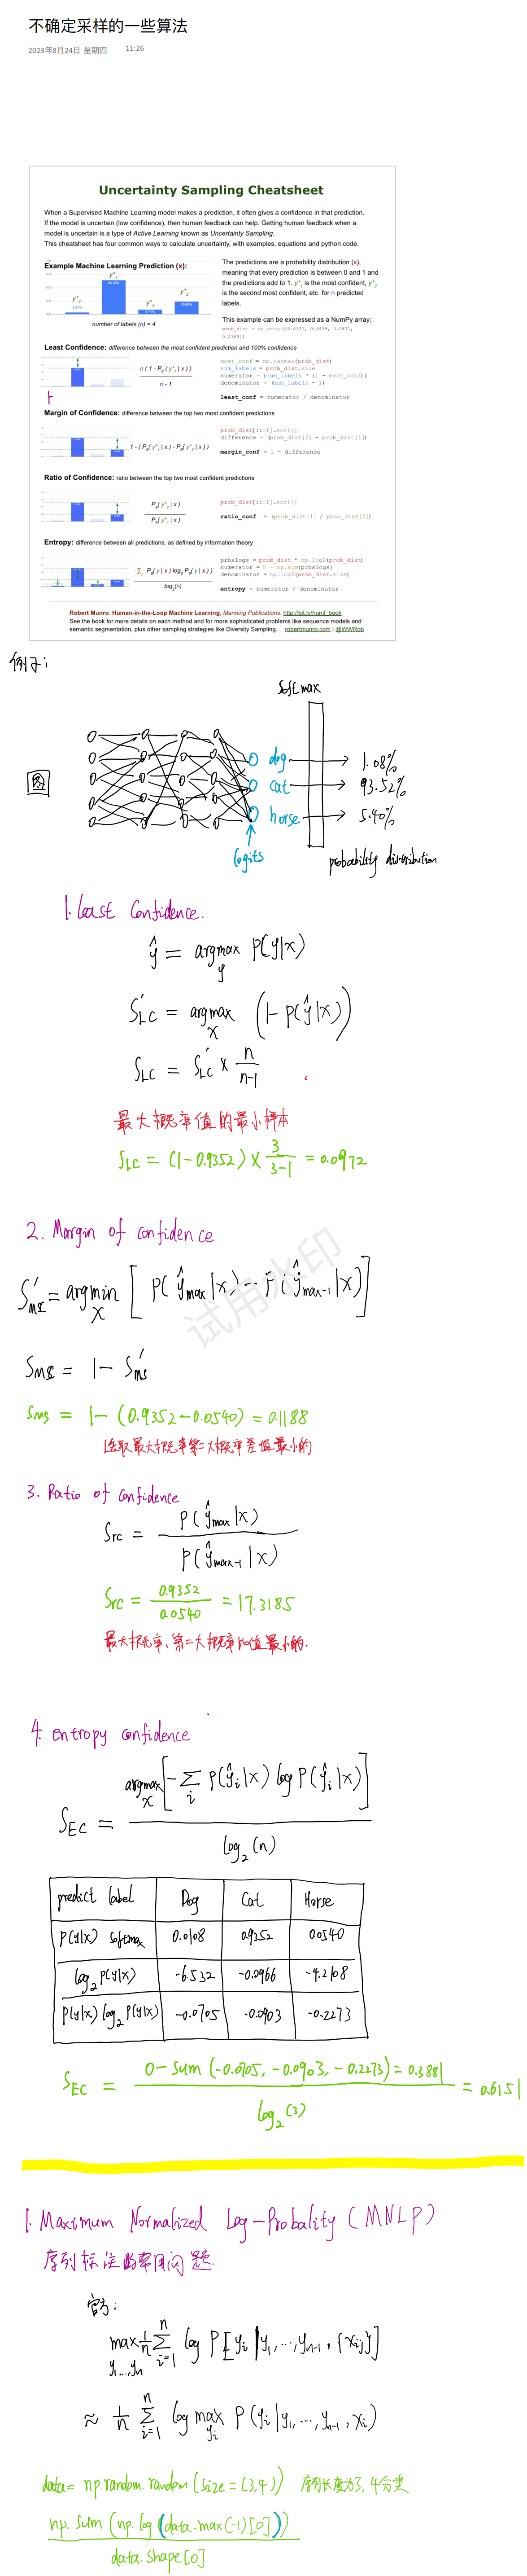 不确定采样的一些算法
2023年8月24日 星期四 11:26
Uncertainty Sampling Cheatsheet
When a Supervised Machine Learning model makes a prediction, it often gives a confidence in that prediction.
If the model is uncertain (low confidence), then human feedback can help. Getting human feedback when a
model is uncertain is a type of Active Learning known as Uncertainty Sampling.
This cheatsheet has four common ways to calculate uncertainty, with examples, equations and python code.
Example Machine Learning Prediction (x):
number of labels (n) = 4
The predictions are a probability distribution (x),
meaning that every prediction is between 0 and 1 and
the predictions add to 1. y*1 is the most confident, y*2
is the second most confident, etc. for n predicted
labels.
This example can be expressed as a NumPy array:
prob_dist = np.array([0.0321, 0.6439, 0.0871, 0.2369])
Least Confidence: difference between the most confident prediction and 100% confidence
n (1 - Pθ(y*1|x))
n - 1
most_conf = np.nanmax(prob_dist)
num_labels = prob_dist.size
numerator = (num_labels * (1 - most_conf))
denominator = (num_labels - 1)
least_conf = numerator / denominator
Margin of Confidence: difference between the top two most confident predictions
1 - (Pθ(y*1|x) - Pθ(y*2|x))
prob_dist[::-1].sort()
difference = (prob_dist[0] - prob_dist[1])
margin_conf = 1 - difference
Ratio of Confidence: ratio between the top two most confident predictions
Pθ(y*2|x)
Pθ(y*1|x)
prob_dist[::-1].sort()
ratio_conf = (prob_dist[1] / prob_dist[0])
Entropy: difference between all predictions, as defined by information theory
-Σy Pθ(y|x) log2 Pθ(y|x)
log2(n)
prbslogs = prob_dist * np.log2(prob_dist)
numerator = 0 - np.sum(prbslogs)
denominator = np.log2(prob_dist.size)
entropy = numerator / denominator
Robert Munro. Human-in-the-Loop Machine Learning, Manning Publications. http://bit.ly/huml_book
See the book for more details on each method and for more sophisticated problems like sequence models and
semantic segmentation, plus other sampling strategies like Diversity Sampling. robertmunro.com | @WWRob
例子:
softmax
图
dog 1.08%
cat 93.52%
horse 5.40%
logits
probability distribution
1. Least Confidence.
ŷ = argmax y P(y|x)
S'LC = argmax x (1-P(ŷ|x))
SLC = S'LC × n/n-1
最大概率值的最小样本
SLC = (1-0.9352) × 3/3-1 = 0.0972
2. Margin of confidence
S'ms = argmin x [P(ŷmax|x) - P(ŷmax-1|x)]
Sms = 1 - S'ms
Sms = 1-(0.9352-0.0540) = 0.1188
选取最大概率第二大概率差值最小的
3. Ratio of confidence
Src = P(ŷmax|x) / P(ŷmax-1|x)
Src = 0.9352/0.0540 = 17.3185
最大概率、第二大概率比值最小的.
4. entropy confidence
SEC = argmax x [-Σi P(ŷi|x) log P(ŷi|x)] / log2(n)
predict label Dog Cat Horse
P(y|x) softmax 0.0108 0.9352 0.0540
log2 P(y|x) -6.532 -0.0966 -4.2108
P(y|x) log2 P(y|x) -0.0705 -0.0903 -0.2273
SEC = 0-sum(-0.0705, -0.0903, -0.2273)=0.3881 / log2(3) = 0.6151
1. Maximum Normalized Log-Probality (MNLP)
序列标注的常用问题.
官方:
max y1,...,yn 1/n Σ i=1 n log P[yi|y1,...,yn-1,{xij}]
≈ 1/n Σ i=1 n log max yi P(yi|y1,...,yn-1,xi)
data = np.random.random(size=(3,4)) 序列长度为3, 4分类
np.sum(np.log(data.max(-1)[0]))
data.shape[0]
试用水印